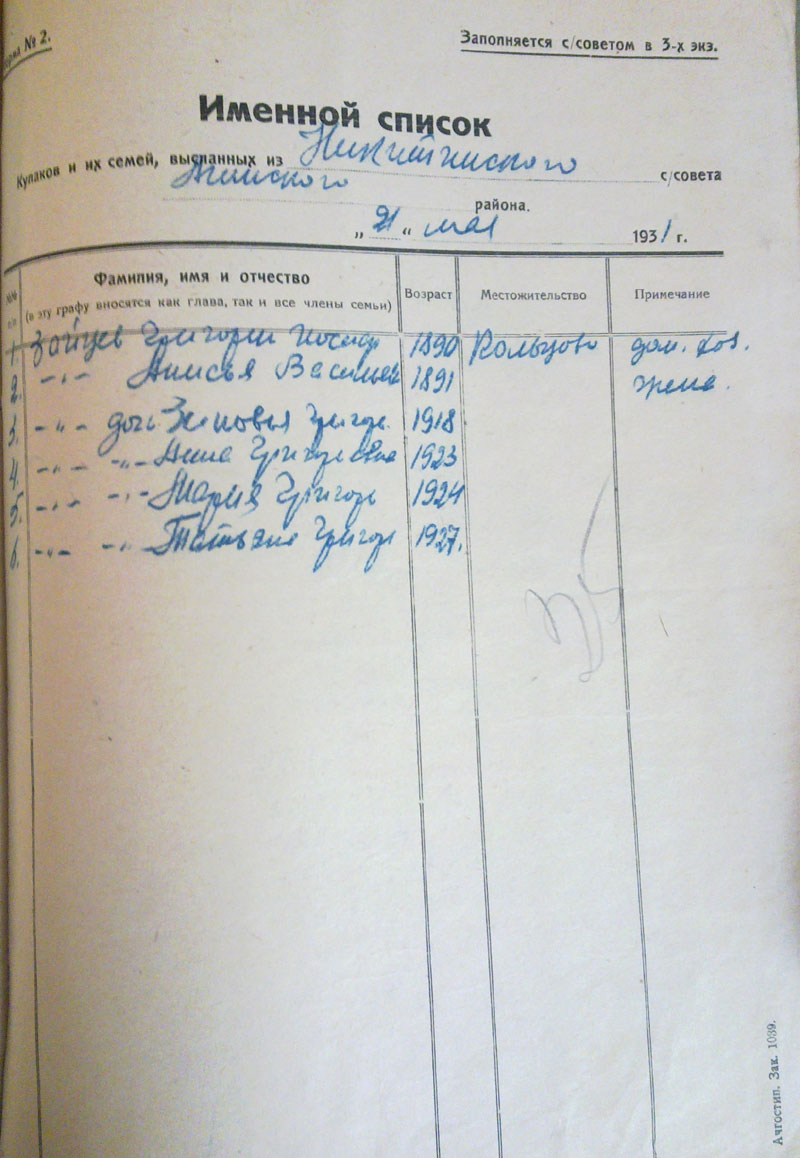 № 2.
Заполняется с/советом в 3-х экз.
Именной список
Кулаков и их семей, высланных из Никитинского с/совета
Ачинского района.
„21“ мая 1931 г.
№№ Фамилия, имя и отчество Возраст Местожительство Примечание
(в эту графу вносятся как глава, так и все члены семьи)
1. Зайцев Григорий 1890 Кольцово дом. хоз.
2. -"- Анисья Васильев 1891 жена.
3. -"- дочь Зиновья Григор. 1918
4. -"- -"- Анна Григоревна 1923
5. -"- -"- Мария Григорь 1924
6. -"- -"- Татьяна Григор 1927.
35
Ачгостип. Зак. 1089.